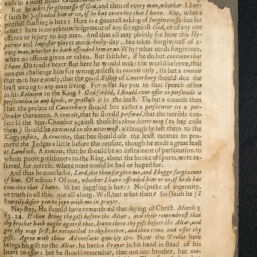 But, he asks forgiveness of God, and then of every man, whether I have
offended him or no, if he conceive that I have. Now, what a
is here? Here is a general asking of forgiveness; but for
what? here is no acknowledgment of any offence
or injury to any man. And this all may plainly see how this Hy-
pocrite and Impostor playes mock-holy-day, hee asks forgiveness of e-
very man, whether he hath offended him or no. Why? what needs forgiveness,
where no offence given or taken. But saith he, if he do but conceive that
I have. Oh tender heart! But here he would make the world beleeve, that
none can challenge him for wrong, unlesse in conceit only, 'tis but a conceit
that men have onely, that the good Bishop of Canterbury should doe the
least wrong to any man living. For what say you to that speech of his
in his Relation to the King? God forbid, I should ever offer to perswade a
persecution in any kinde, or practise it in the least. 'Tis but a conceit then
that the prelate of Canterbury should bee called a persecutor or a per-
swader thereunto. A conceit, that he should perswade, that the terrible cen-
sure in the Star-Chamber against those his three
them) should be executed to the uttermost, although he left them to the
Kings justice. A conceit, that hee should use the least means to pro-
cure the Judges a little before the censure, though he made a great feast
at Lambeth. A conceit, that he should be an instrument of perswasion, to
whom poore petitioners to the King, about the booke of sports, were re-
ferred for mercie, where none could be had or hoped for.
And thus he concludes, Lord, doe thou forgive me, and I begge forgivenesse
of him. Of whom? Of one, whether I have offended him or no, if he do but
conceive that I have. What juggling is here? No sparke of ingenuity,
or truth in all this, nor all along. Well, but what then? So (saith he) I
heartily desire you to joyn with me in prayer.
Nay stay, He should have remembred that saying of Christ, Math. 5.
23, 24. If thou bring thy gift before the Altar, and there remembrest that
thy brother hath ought against thee, leave there thy gift before the Altar, and
goe thy way first, be reconciled to thy brother, and then come and offer thy
gift. Agree with thine Adversary quickly &c. Now the Prelate here
brings his gift to the Altar, he hath a Prayer in his hand in stead of his
heart to offer: but he should remember, that not one brother, but ma-